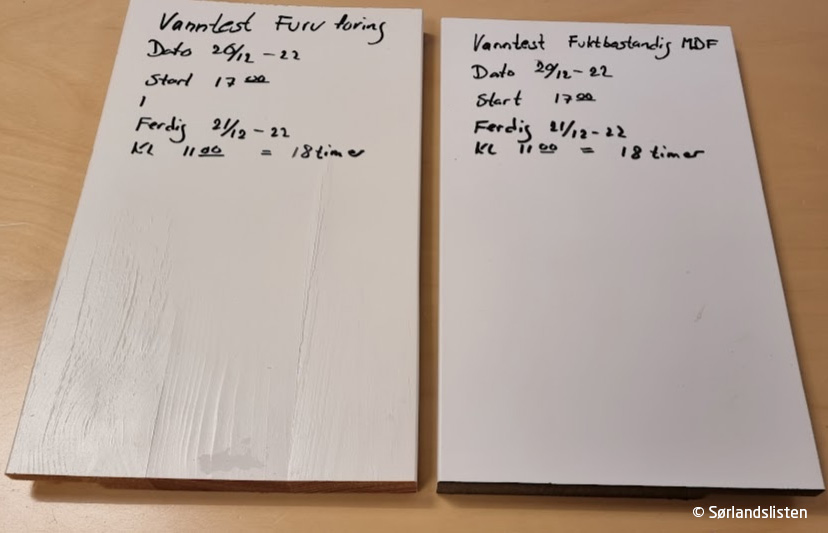 Vanntest Furu foring
Dato 20/12 - 22
Start 17 00
Ferdig 21/12 - 22
KL 11 00 = 18 timer
Vanntest Fuktbestandig MDF
Dato 20/12 - 22
Start 17 00
Ferdig 21/12 - 22
KL 11 00 = 18 timer
© Sørlandslisten